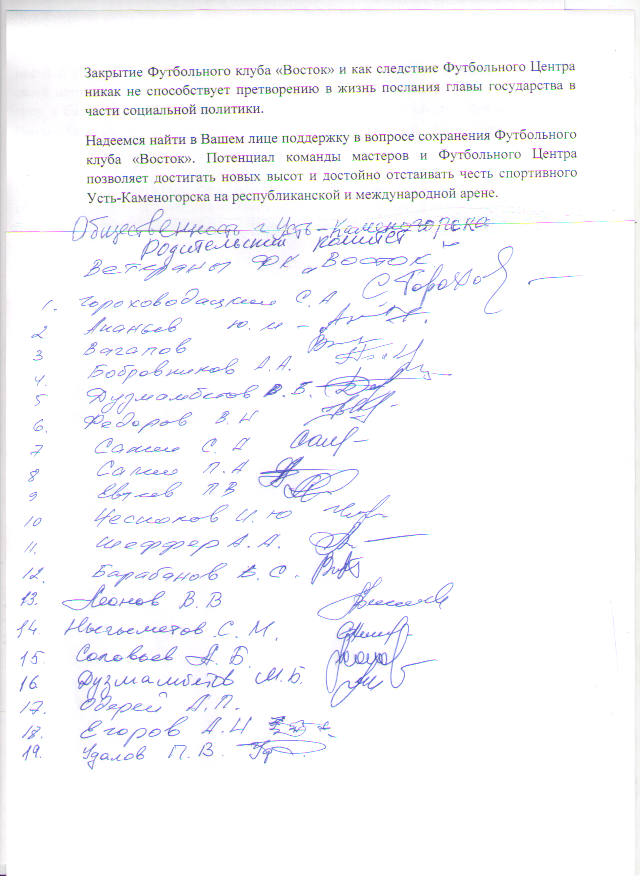 Закрытие Футбольного клуба «Восток» и как следствие Футбольного Центра
никак не способствует претворению в жизнь послания главы государства в
части социальной политики.
Надеемся найти в Вашем лице поддержку в вопросе сохранения Футбольного
клуба «Восток». Потенциал команды мастеров и Футбольного Центра
позволяет достигать новых высот и достойно отстаивать честь спортивного
Усть-Каменогорска на республиканской и международной арене.
Общественность г. Усть-Каменогорска
Родительский комитет
Ветераны ФК „Восток"
1. Гороховодацкий С.А С Горохов
2 Ананьев Ю.М -
3 Вагапов
4. Бобровников А.А.
5 Дузмамбетов Б.
6. Федоров В.Н
7 Сакии С. А
8 Сакии П.А
9 Евтеев ПВ
10 Чесноков И.Ю
11. Шеффер А.А.
12. Барабанов В.С.
13. Леонов В.В
14. Нысыметов С.М.
15. Соловьев А.Б.
16. Дузмамбетов М.Б.
17. Одерей А.П.
18. Егоров А.Н
19. Удалов П.В. Уд